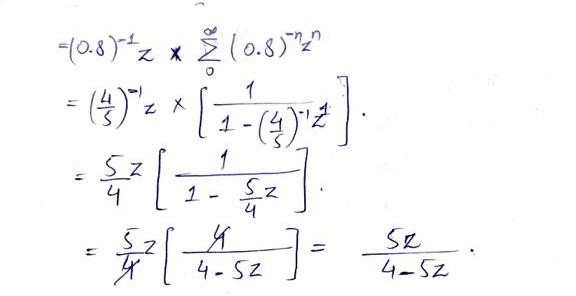 =(0.8)^{-1} z × \sum_{0}^{∞} (0.8)^{-n} z^{n}
= (4/5)^{-1} z × [ 1 / (1 - (4/5)^{-1} z^{1}) ].
= 5/4 z [ 1 / (1 - 5/4 z) ].
= 5/4 z [ 4 / (4 - 5z) ] = 5z / (4 - 5z) .